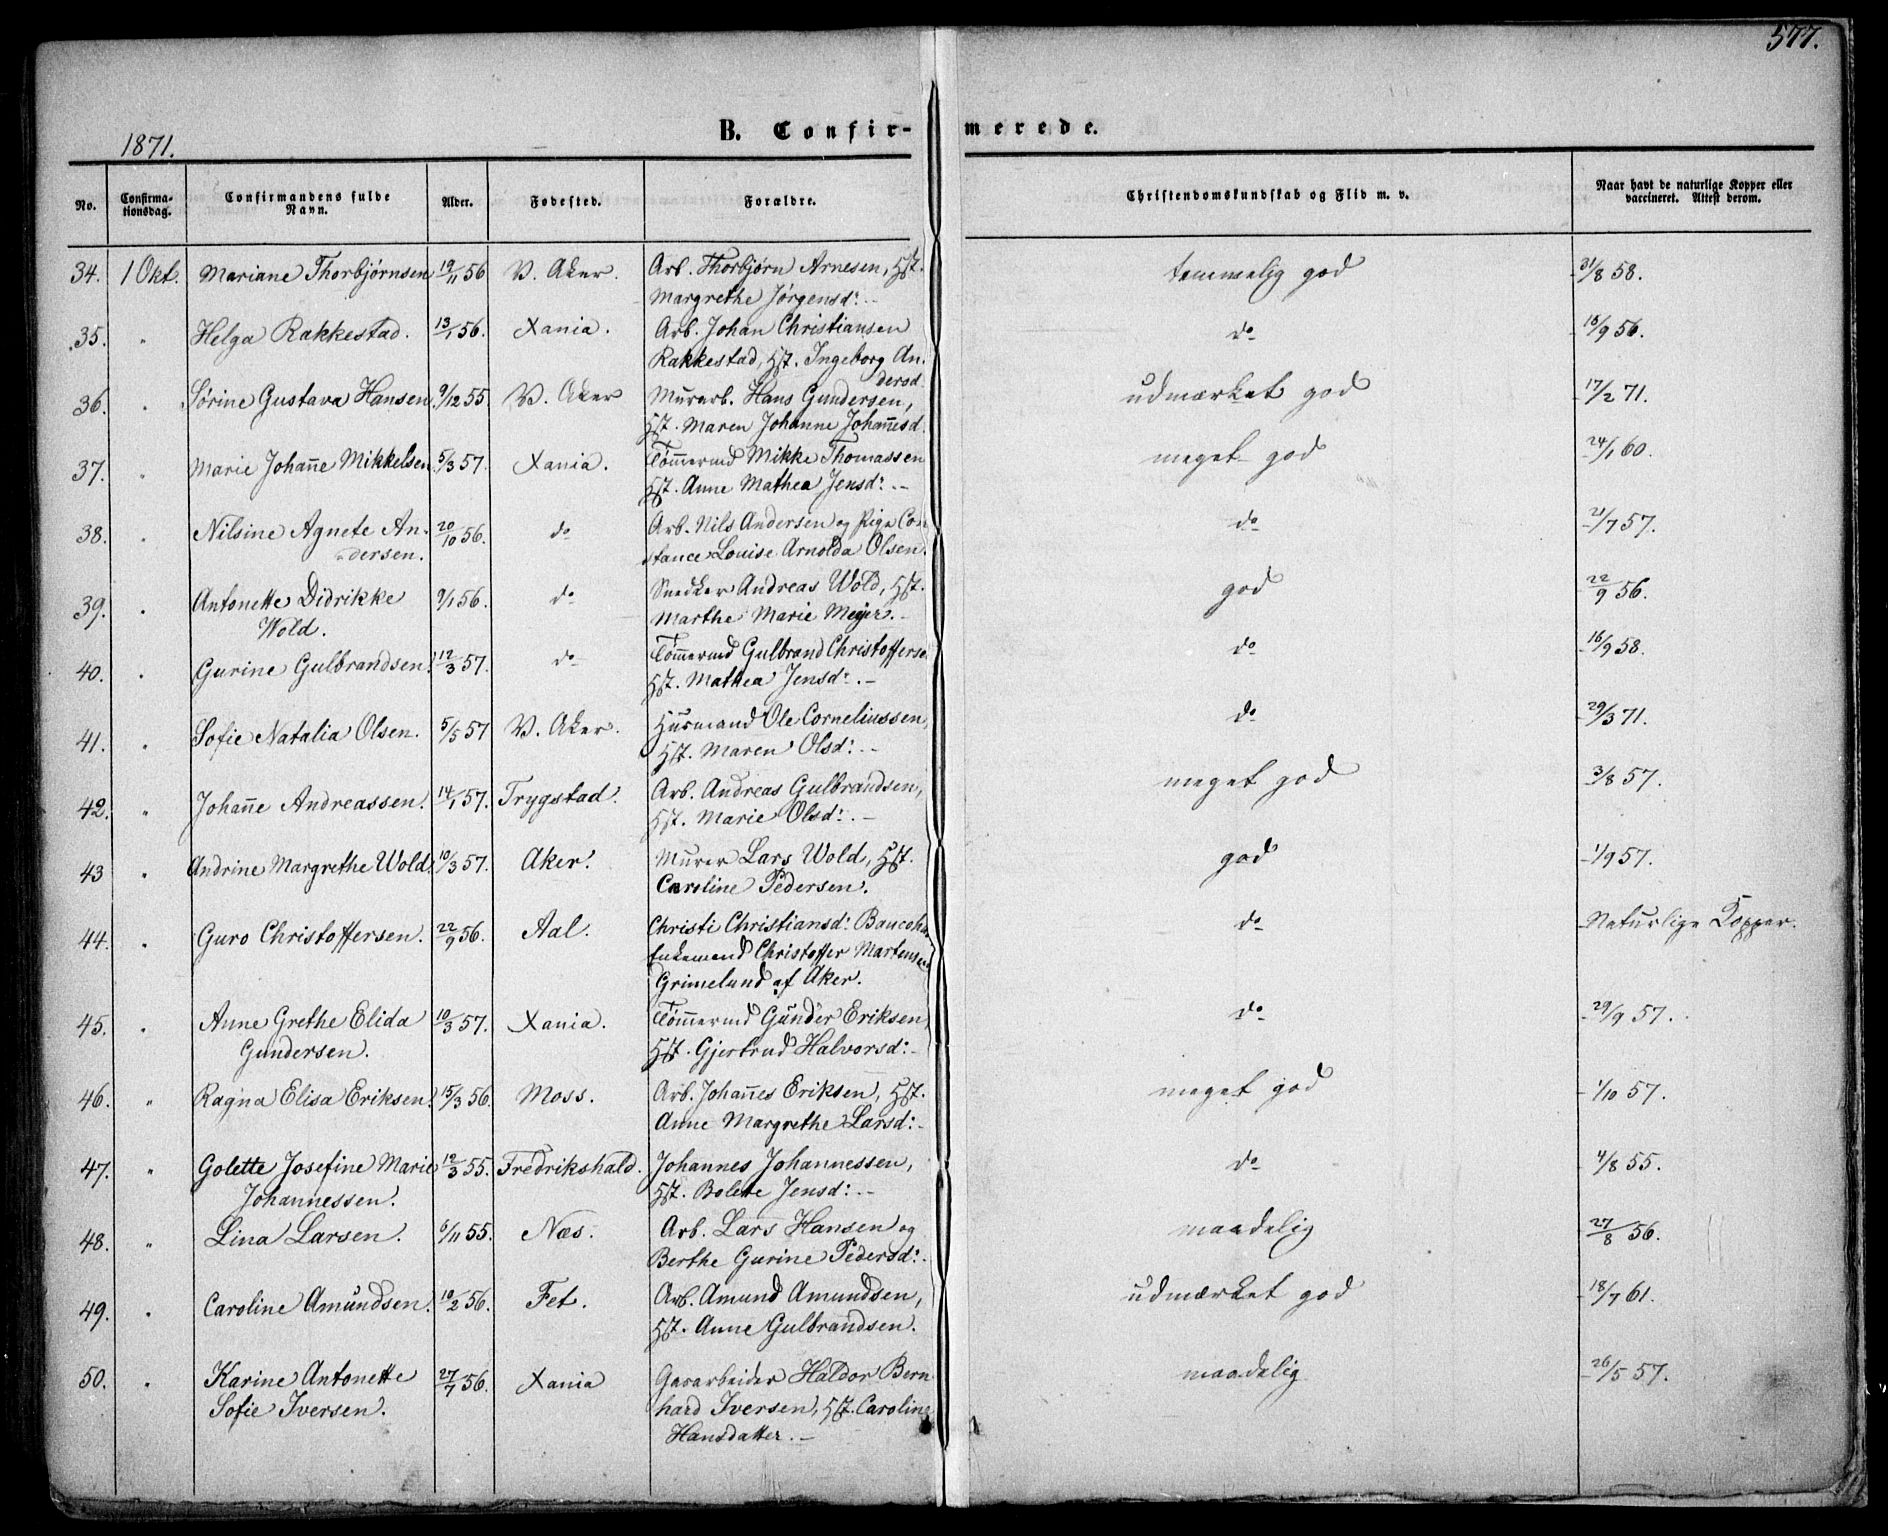 577.
1871.
B. Confirmerede.
No. Confirmationsdag. Confirmandens fulde Navn. Alder. Fødested. Forældre. Christendomskundskab og Flid m. v. Naar havt de naturlige Kopper eller vaccineret. Attest derom.
34. 1 Okt. Mariane Thorbjørnsen 19/11 56 V. Aker. Arb. Thorbjørn Arnesen, Hst. temmelig god 31/8 58.
Margrethe Jørgensd: -
35. " Helga Rakkestad. 13/1 56. Xania. Arb. Johan Christiansen do 18/9 56.
Rakkestad, Hst. Ingeborg An-
dersd.
36. " Sørine Gustava Hansen 9/12 55 V. Aker Murarb. Hans Gundersen, udmærket god 17/2 71.
Hst. Maren Johanne Johan̄esd.
37. " Marie Johan̄e Mikkelsen 5/3 57. Xania. Tømmermd Mikke Thomassen meget god 24/1 60.
Hst. Anne Mathea Jensd: -
38. " Nilsine Agnete An- 20/10 56. do Arb. Nils Andersen og Pige Con- do 21/7 57.
dersen. stance Louise Arnolda Olsen.
39. " Antonette Didrikke 9/1 56. do Snedker Andreas Wold, Hst. god 22/9 56.
Wold. Marthe Marie Meyer. -
40. " Gurine Gulbrandsen. 12/3 57. do Tømmermd Gulbrand Christofferse do 16/9 58.
Hst. Mathea Jensd: -
41. " Sofie Natalia Olsen. 5/5 57 V. Aker. Husmand Ole Corneliussen, do 29/3 71.
Hst. Maren Olsd: -
42. " Johan̄e Andreassen. 14/1 57. Trygstad. Arb. Andreas Gulbrandsen, meget god 3/8 57.
Hst. Marie Olsd: -
43 " Andrine Margrethe Wold. 10/3 57. Aker. Murer Lars Wold, Hst. god 1/9 57.
Caroline Pedersen.
44. " Guro Christoffersen. 22/9 56. Aal. Christi Christiansd: do Naturlige Kopper.
Enkemand Christoffer Martens
Grimelund af Aker.
45. " Anne Grethe Elida 10/3 57. Xania. Tømmermd Gunder Eriksen, do 29/9 57.
Gundersen. Hst. Gjertrud Halvorsd: -
46. " Ragna Elisa Eriksen. 15/3 56. Moss. Arb. Johan̄es Eriksen, Hst. meget god 1/10 57.
Anne Margrethe Larsd: -
47. " Golette Josefine Marie 12/3 55. Fredrikshald. Johannes Johannessen, do 4/8 55.
Johannessen. Hst. Bolette Jensd: -
48. " Lina Larsen. 6/11 55. Næs. Arb. Lars Hansen og maadelig 27/8 56.
Berthe Gurine Pedersd: -
49. " Caroline Amundsen. 10/2 56. Fet. Arb. Amund Amundsen, udmærket god 18/7 61.
Hst. Anne Gulbrandsen.
50. " Karine Antonette 27/7 56. Xania Gasarbeider Haldor Bern- maadelig 26/5 57.
Sofie Iversen. hard Iversen, Hst. Caroline
Hansdatter. -